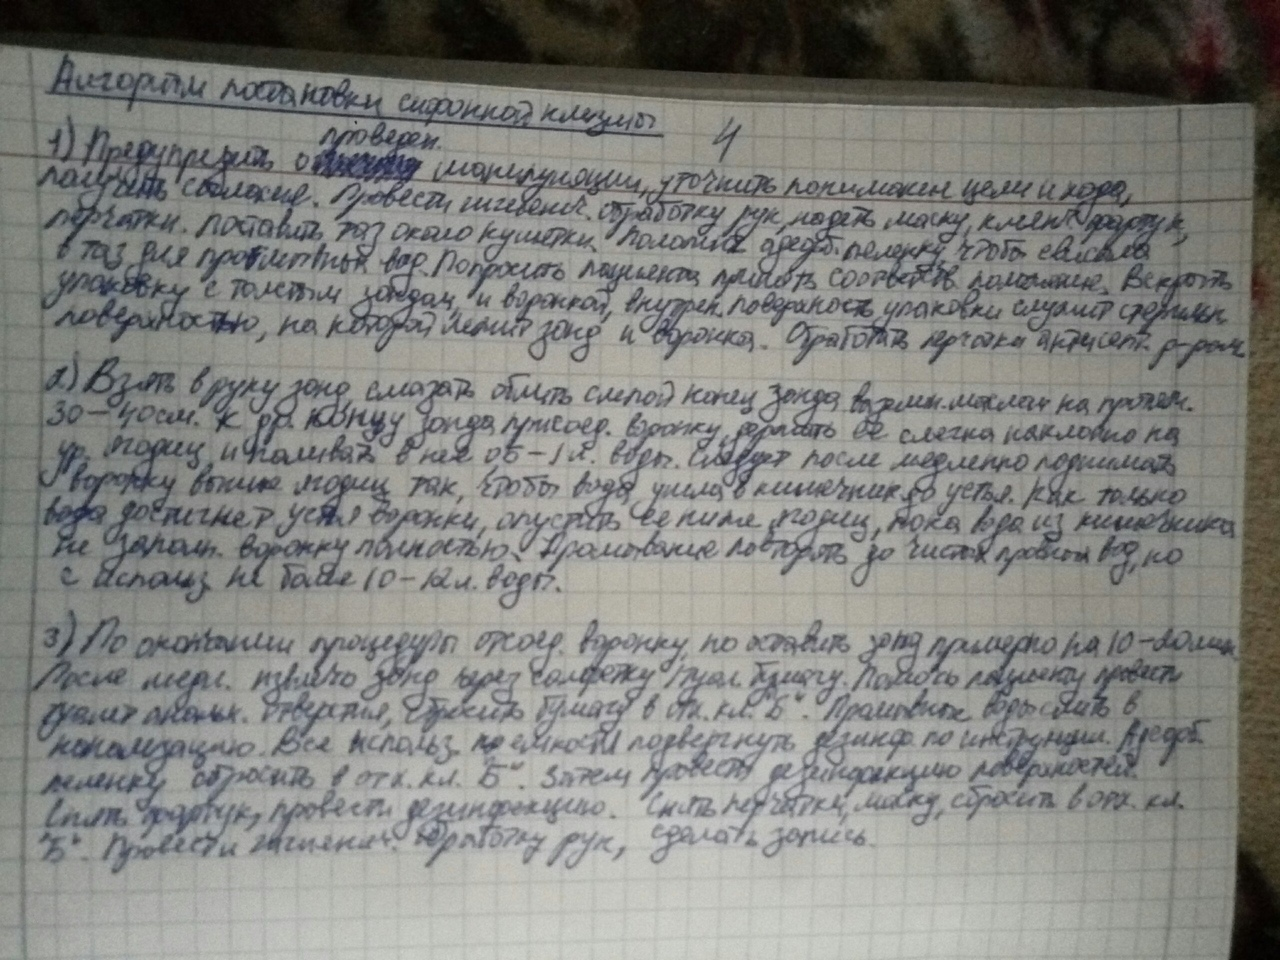 Алгоритм постановки сифонной клизмы
4
проведен.
1) Предупредить о манипуляции, уточнить понимание цели и хода,
получить согласие. Провести гигиенич. обработку рук, надеть маску, клеенч. фартук,
перчатки. Поставить таз около кушетки. Положить адсорб. пеленку, чтобы свисала
в таз для промывных вод. Попросить пациента принять соответств. положение. Вскрыть
упаковку с толстым зондом и воронкой, внутрен. поверхность упаковки служит стерильн.
поверхностью, на которой лежит зонд и воронка. Обработать перчатки антисепт. р-ром.
2) Взять в руку зонд, смазать облить слепой конец зонда вазелин. маслом на протяж.
30-40см. К др. концу зонда присоед. воронку, держать ее слегка наклонно на
ур. ягодиц и наливать в нее 0,5-1 л. воды. Следует после медленно поднимать
воронку выше ягодиц так, чтобы вода ушла в кишечник до устья. Как только
вода достигнет устья воронки, опустить ее ниже ягодиц, пока вода из кишечника
не заполн. воронку полностью. Промывание повторять до чистых промыв. вод, но
с использ. не более 10-12л. воды.
3) По окончании процедуры отсоед. воронку, но оставить зонд примерно на 10-20мин.
После медл. извлечь зонд через салфетку/туал. бумагу. Помочь пациенту провести
туалет анальн. отверстия, сбросить бумагу в отх. кл. "Б". Промывные воды слить в
канализацию. Все использ. емкости подвергнуть дезинф. по инструкции. Адсорб.
пеленку сбросить в отх. кл. "Б". Затем провести дезинфекцию поверхностей.
Снять фартук, провести дезинфекцию. Снять перчатки, маску, сбросить в отх. кл.
"Б". Провести гигиенич. обработку рук, сделать запись.